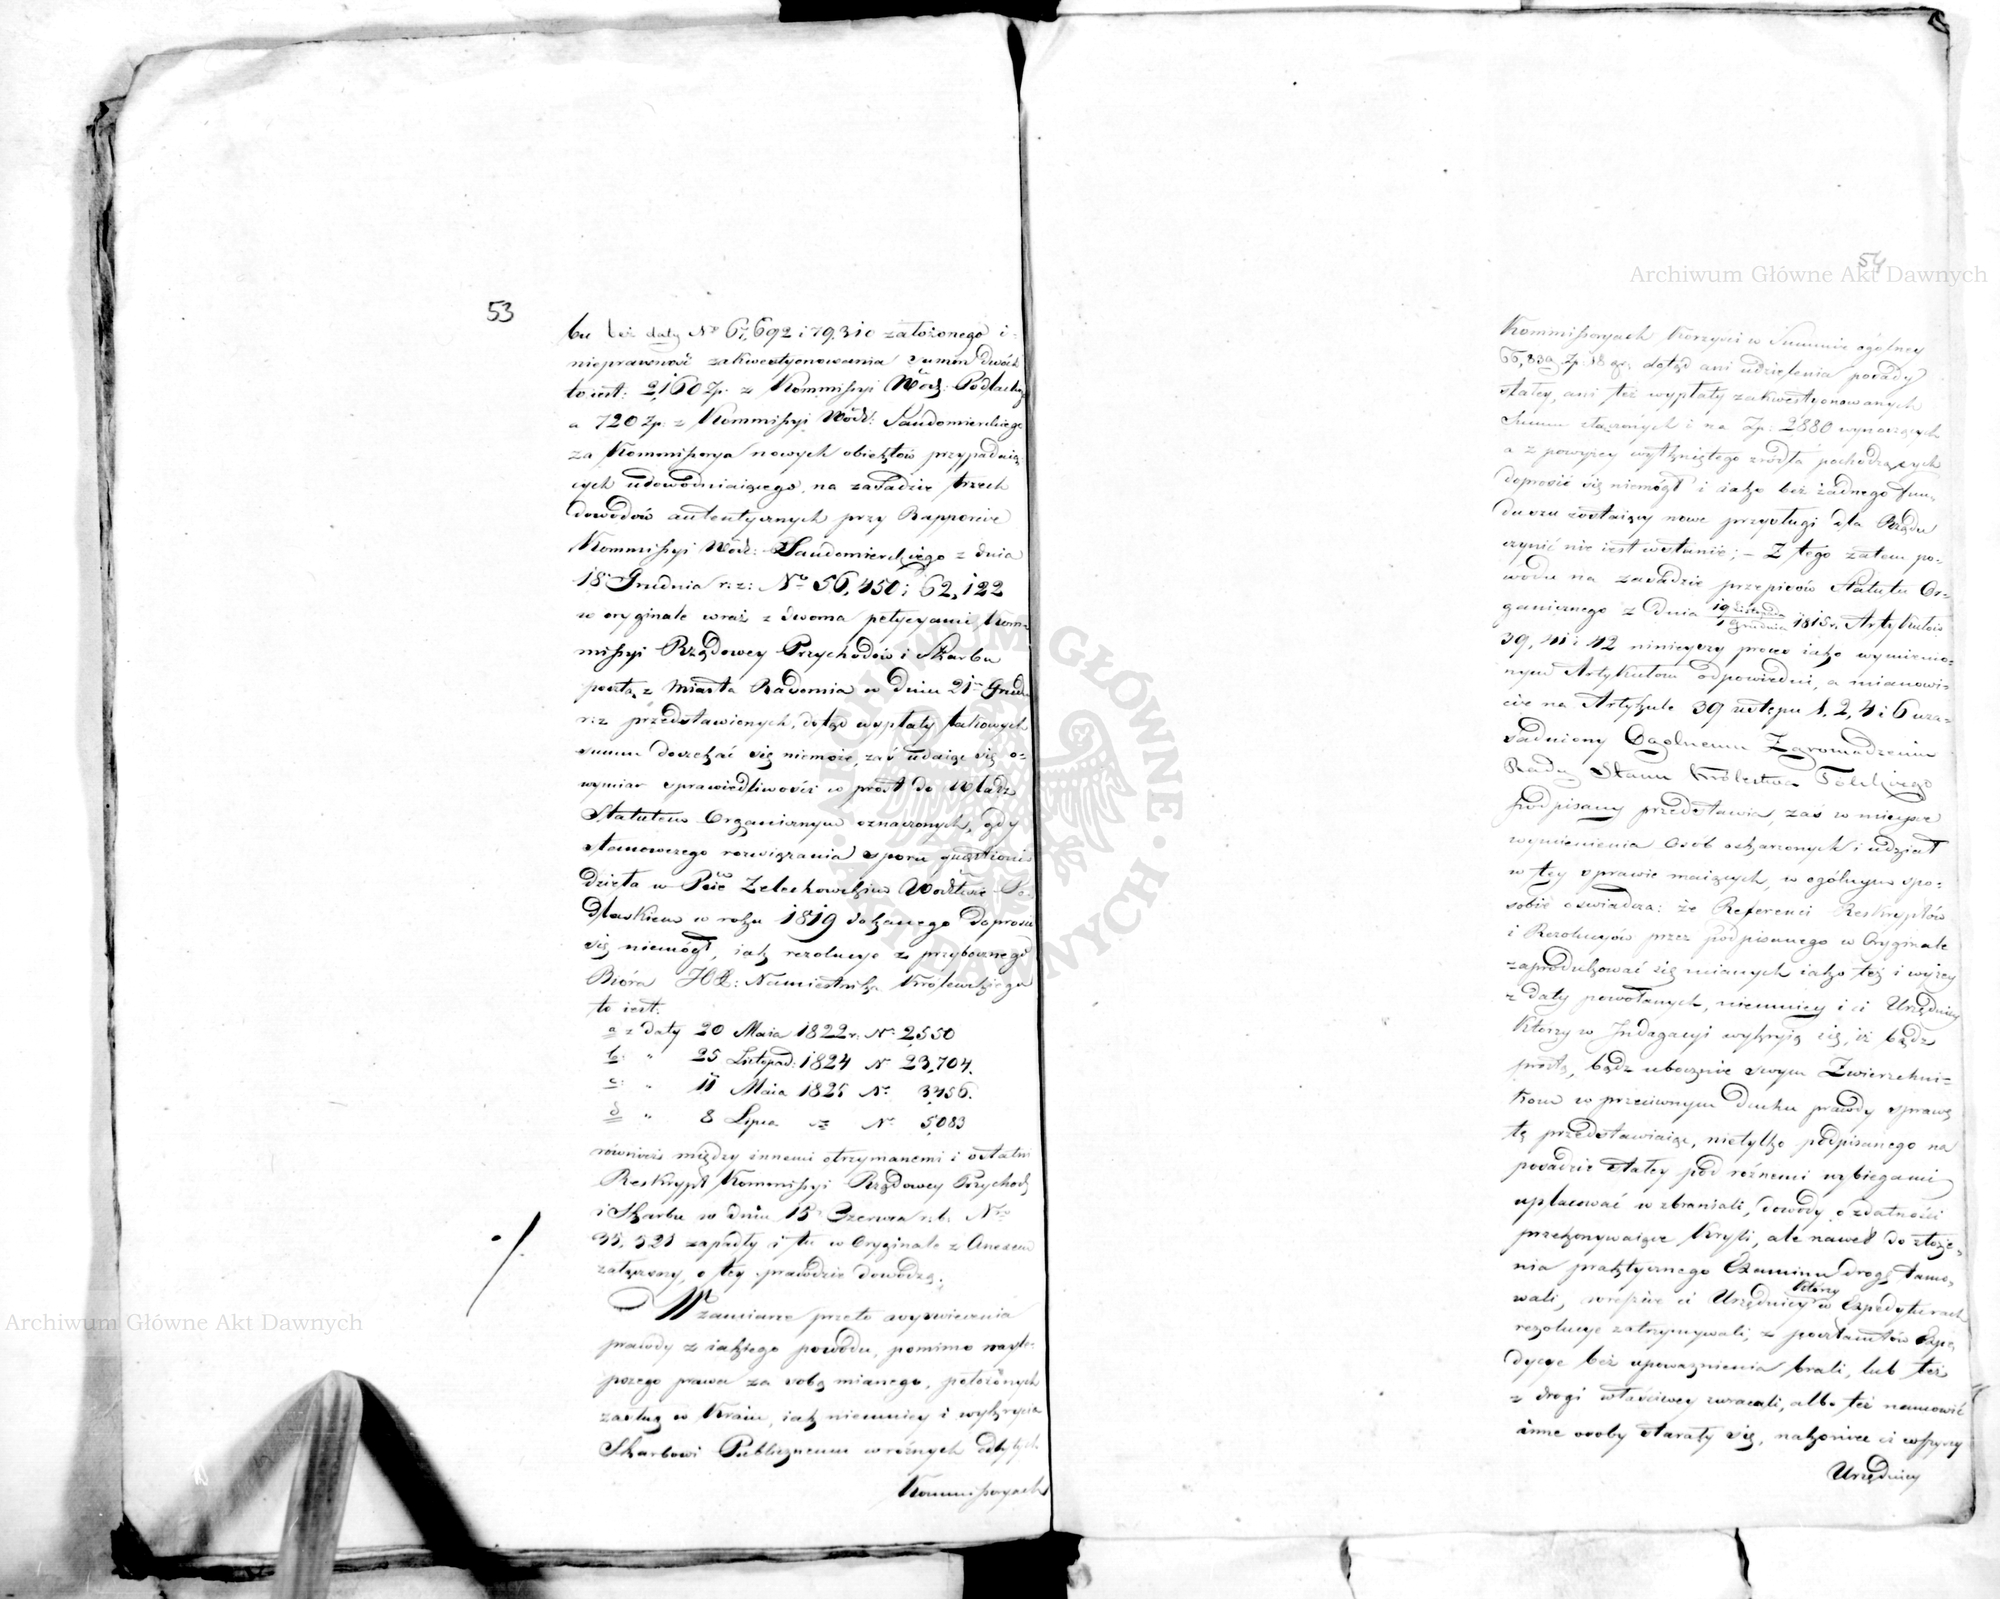 53
bu bez daty Nro 67,692 i 79,310 założonego i
nieprawność zakwestyonowania Summ dwóch
to iest: 2,160 Zp: z Kommissyi Wodz: Podlaskiey
a 720 Zp: z Kommissyi Wodz: Sandomierskiego
za Kommissorya nowych obiektów przypadaią
cych udowodniaiącego, na zasadzie trzech
dowodów autentycznych przy Rapporcie
Kommissyi Wodz: Sandomierskiego z dnia
18 Grudnia r: z: No 56,450 i 62,122
w oryginale wraz z dwoma petycyami Kom-
missyi Rządowey Przychodów i Skarbu
pocztą z Miasta Radomia w dniu 21 Grud:
r: z przedstawionych, dotąd wypłaty takowych
summ doczekać się niemoże, zaś udaiąc się o
wymiar sprawiedliwości w prost do Władz
Statutem Organicznym oznaczonych, gdy
stanowczego rozwiązania sporu
dzieła w Pcie Żelechowskim Wodztwie Po-
dlaskiem w roku 1819 dokanego doprosić
się niemógł, iak rezolucye z przybocznego
Bióra JO X: Namiestnika Królewskiego
to iest:
a z daty 20 Maia 1822 r: No 2,550
b: " 25 Listopad: 1824 No 23,704.
c: " 11 Maia 1825 No 3,456.
d " 8 Lipca No 5,083
równieiż między innemi otrzymanemi i ostatni
Reskrypt Kommissyi Rządowey Przychod:
i Skarbu w dniu 15 Czerwca r: b: Nro
35,521 zapadły i tu w Oryginale z Anexem
załączony, o tey prawdzie dowodzą.
W zamiarze przeto wyświecenia
prawdy z iakiego powodu, pomimo naylep-
szego prawa za sobą mianego, położonych
zasług w Kraiu, iak niemniey i wykrycia
Skarbowi Publicznemu w różnych odbytych
Kommissoryach
54
Kommissoryach Korzyści w Summie ogólney
66,839 Zp: 18 gr: dotąd ani udzielenia posady
stałey, ani też wypłaty zakwestyonowanych
Summ złączonych i na Zp: 2880 wynoszących
a z powyżey wytkniętego źródła pochodzących
doprosić się niemógł i iako bez żadnego fun-
duszu zostaiący nowe przysługi dla Rządu
czynić nie iest w stanie; – Z tego zatem po-
wodu na zasadzie przepisów Statutu Or-
ganicznego z dnia 19 Listopada / 1 Grudnia 1815 r. Artykułów
39, 41 i 42 ninieyszy proces iako wymienio-
nym Artykułom odpowiedni, a mianowi-
cie na Artykule 39 ustępu 1, 2, 4 i 6 uza-
sadniony Ogólnemu Zgromadzeniu
Rady Stanu Królestwa Polskiego
podpisany przedstawia, zaś w mieysce
wymienienia osób oskarżonych i udział
w tey sprawie maiących, w ogólnym spo-
sobie oświadcza: że Referenci Reskryptów
i Rezolucyów przez podpisanego w Oryginale
zaprodukować się mianych iako też i wyżey
z daty powołanych, niemniey i ci Urzędnicy
Którzy w Indagacyi wykryią się, iż bądź
prosto, bądź ubocznie swym Zwierzchni-
kom w przeciwnym duchu prawdy sprawę
tę przedstawiaiąc, nietylko podpisanego na
posadzie stałey pod różnemi wybiegami
uplacować wzbraniali, dowody o zdatności
przekonywaiące Kryli, ale nawet do złoże-
nia praktycznego Examinu drogę tamo-
wali, wreszcie ci Urzędnicy którzy w Expedyturach
rezolucye zatrzymywali, z pocztamtów Expe-
dycye bez upoważnienia brali, lub też
z drogi właściwey zwracali, albo też namowić
inne osoby starały się, nakoniec ci wszyscy
Urzędnicy